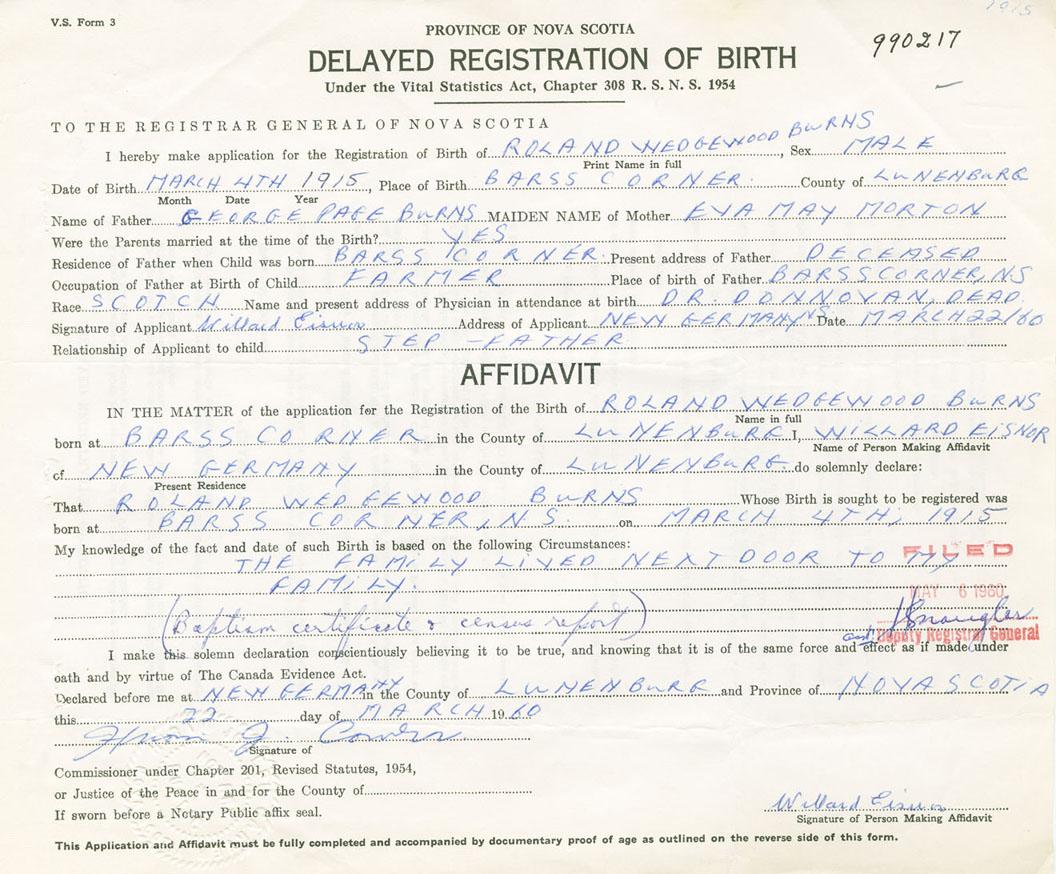 1915
V.S. Form 3
PROVINCE OF NOVA SCOTIA
990217
DELAYED REGISTRATION OF BIRTH
Under the Vital Statistics Act, Chapter 308 R. S. N. S. 1954
TO THE REGISTRAR GENERAL OF NOVA SCOTIA
I hereby make application for the Registration of Birth of ROLAND WEDGEWOOD BURNS, Sex MALE
Print Name in full
Date of Birth MARCH 4TH 1915, Place of Birth BARSS CORNER. County of LUNENBURG
Month Date Year
Name of Father GEORGE PAGE BURNS MAIDEN NAME of Mother EVA MAY MORTON
Were the Parents married at the time of the Birth? YES
Residence of Father when Child was born BARSS CORNER. Present address of Father DECEASED
Occupation of Father at Birth of Child FARMER Place of birth of Father BARSS CORNER, NS
Race SCOTCH Name and present address of Physician in attendance at birth DR. DONNOVAN, DEAD.
Signature of Applicant Willard Eisnor Address of Applicant NEW GERMANY NS Date MARCH 22/60
Relationship of Applicant to child STEP-FATHER
AFFIDAVIT
IN THE MATTER of the application for the Registration of the Birth of ROLAND WEDGEWOOD BURNS
Name in full
born at BARSS CORNER in the County of LUNENBURG I, WILLARD EISNOR
Name of Person Making Affidavit
of NEW GERMANY in the County of LUNENBURG do solemnly declare:
Present Residence
That ROLAND WEDGEWOOD BURNS Whose Birth is sought to be registered was
born at BARSS CORNER, N.S. on MARCH 4TH, 1915
My knowledge of the fact and date of such Birth is based on the following Circumstances:
THE FAMILY LIVED NEXT DOOR TO MY
FILED
FAMILY.
MAY 6 1960
(Baptism certificate & census report)
Deputy Registrar General
I make this solemn declaration conscientiously believing it to be true, and knowing that it is of the same force and effect as if made under
oath and by virtue of The Canada Evidence Act.
Declared before me at NEW GERMANY in the County of LUNENBURG and Province of NOVA SCOTIA
this 22 day of MARCH 1960
Signature of
Commissioner under Chapter 201, Revised Statutes, 1954,
or Justice of the Peace in and for the County of
If sworn before a Notary Public affix seal.
Willard Eisnor
Signature of Person Making Affidavit
This Application and Affidavit must be fully completed and accompanied by documentary proof of age as outlined on the reverse side of this form.